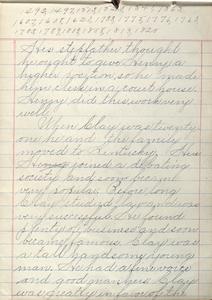 His stepfather thought
he ought to give Henry a
higher position, so he made
him clerk in a court house.
Henry did this work very
well.
When Clay was twenty
one he and the family
moved to Kentucky. His
Henry joined a debating
society and soon became
very popular. Before long
Clay studied law and was
very successful. He found
plenty of business and soon
became famous. Clay was
a tall handsome young
man. He had a fine voice
and good manners. Clay
was greatly in favor of the